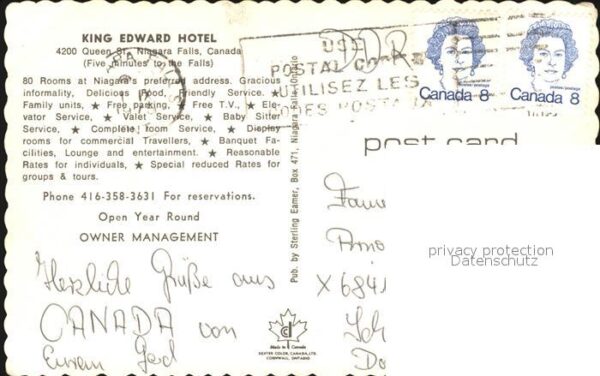 KING EDWARD HOTEL
4200 Queen St., Niagara Falls, Canada
(Five minutes to the Falls)
80 Rooms at Niagara's preferred address. Gracious
informality, Delicious Food, Friendly Service. ★
Family units, ★ Free parking, ★ Free T.V., ★ Ele-
vator Service, ★ Valet Service, ★ Baby Sitter
Service, ★ Complete room Service, ★ Display
rooms for commercial Travellers, ★ Banquet Fa-
cilities, Lounge and entertainment. ★ Reasonable
Rates for individuals, ★ Special reduced Rates for
groups & tours.
Phone 416-358-3631 For reservations.
Open Year Round
OWNER MANAGEMENT
Herzliche Grüße aus
CANADA von
Eurem Gerd
Pub. by Sterling Eamer, Box 471, Niagara Falls, Ontario
Made in Canada
DEXTER COLOR, CANADA, LTD.
CORNWALL, ONTARIO
USE
POSTAL CODES
UTILISEZ LES
CODES POSTAUX
DDR
Canada 8
Canada 8
post card
X 6841
privacy protection
Datenschutz